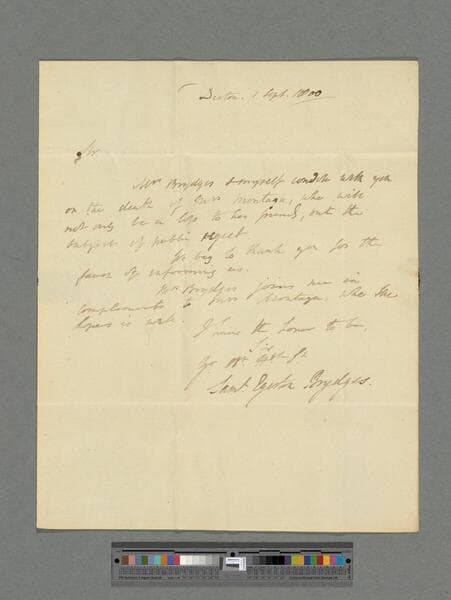 Denton. 1 Sept. 1800
Sir
Mrs Brydges & myself condole with you
on the death of Mrs Montagu, who will
not only be a loss to her friends, but the
subject of public regret.
We beg to thank you for the
favor of informing us.
Mrs Brydges joins me in
compliments to Mrs Montagu, who she
hopes is well.
I have the honor to be,
Sir
Yr
Saml Egerton Brydges.